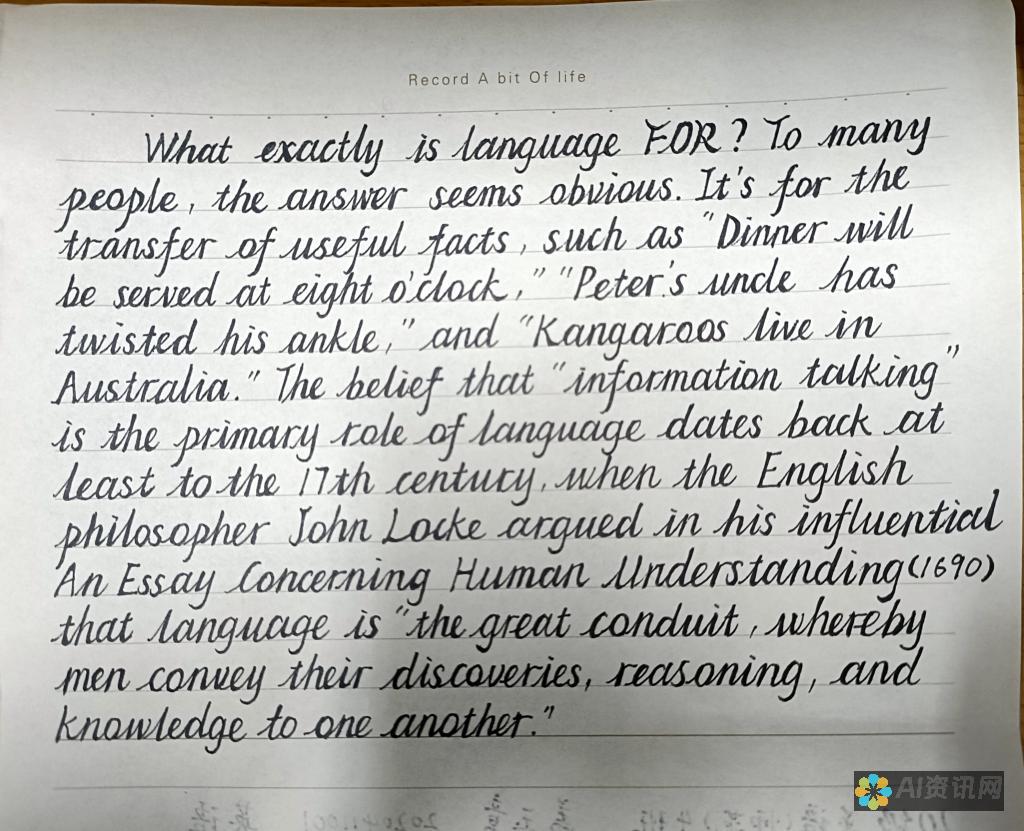 Record A bit Of life
What exactly is language FOR? To many
people, the answer seems obvious. It's for the
transfer of useful facts, such as "Dinner will
be served at eight o'clock," "Peter's uncle has
twisted his ankle," and "Kangaroos live in
Australia." The belief that "information talking"
is the primary role of language dates back at
least to the 17th century, when the English
philosopher John Locke argued in his influential
An Essay Concerning Human Understanding(1690)
that language is "the great conduit, whereby
men convey their discoveries, reasoning, and
knowledge to one another."
AI资讯网